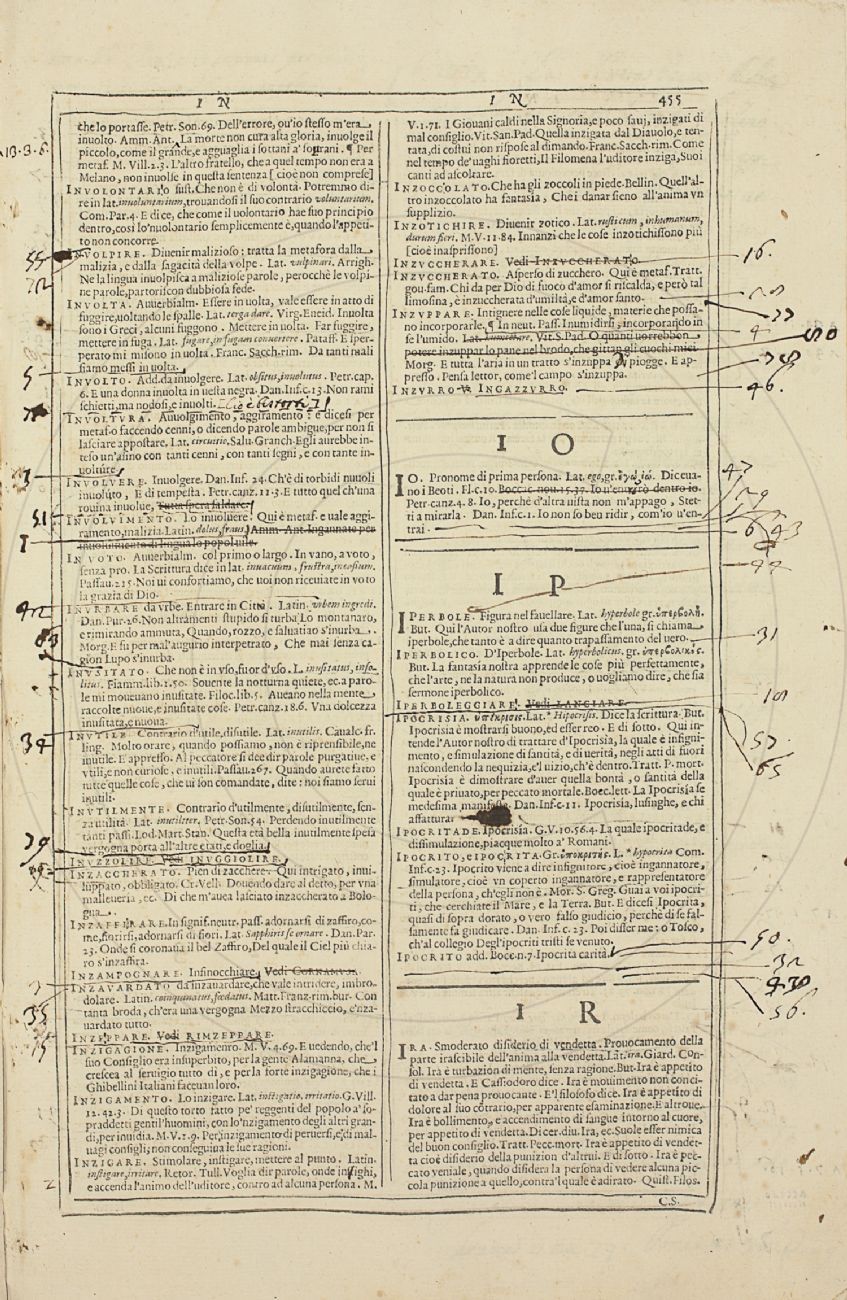 IN
IN
455
che lo portasse. Petr. Son. 69. Dell'errore, ou'io stesso m'era
inuolto. Amm. Ant. La morte non cura alta gloria, inuolge il
piccolo, come il grande, e agguaglia i sottani a' sourani. ¶ Per
metaf. M. Vill. 2. 3. L'altro fratello, che a quel tempo non era a
Melano, non inuolse in questa sentenza [cioè non comprese]
INVOLONTARIO sust. Che non è di volontà. Potremmo di-
re in lat. inuoluntarium, trouandosi il suo contrario voluntarium.
Com. Par. 4. E dice, che come il uolontario hae suo principio
dentro, così lo'nuolontario semplicemente è, quando l'appeti-
to non concorre.
INVOLPIRE. Diuenir malizioso; tratta la metafora dalla
malizia, e dalla sagacità della volpe. Lat. vulpinari. Arrigh.
Ne la lingua inuolpisca maliziose parole, perocchè le volpi-
ne parole, partoriscon dubbiosa fede.
INVOLTA. Auuerbialm. Essere in uolta, vale essere in atto di
fuggire, uoltando le spalle. Lat. terga dare. Virg. Eneid. Inuolta
sono i Greci, alcuni fuggono. Mettere in uolta. Far fuggire,
mettere in fuga. Lat. fugare, in fugam conuertere. Pataff. E sper-
perato mi misono in uolta. Franc. Sacch. rim. Da tanti mali
siamo messi in uolta.
INVOLTO. Add. da inuolgere. Lat. obsitus, inuolutus. Petr. cap.
6. E una donna inuolta in uesta negra. Dan. Inf. c. 13. Non rami
schietti, ma nodosi, e inuolti.
INVOLTVRA. Auuolgimento, aggiramento: e dicesi per
metaf. o faccendo cenni, o dicendo parole ambigue, per non si
lasciare appostare. Lat. circuitio. Salu. Granch. Egli aurebbe in-
teso un'asino con tanti cenni, con tanti segni, e con tante in-
uolture.
INVOLVERE. Inuolgere. Dan. Inf. 24. Ch'è di torbidi nuuoli
inuoluto, E di tempesta. Petr. canz. 11. 3. E tutto quel ch'una
rouina inuolue, Tutta spera saldare.
INVOLVIMENTO. Lo inuoluere. Qui è metaf. e uale aggi-
ramento, malizia. Latin. dolus, fraus. Amm. Ant. Ingannato per
inuoluimento di lingua lo popol uile.
IN VOTO. Auuerbialm. col primo o largo. In vano, a voto,
senza pro. La Scrittura dice in lat. in vacuum, frustra, incassum.
Passau. 215. Noi ui confortiamo, che uoi non riceuiate in voto
la grazia di Dio.
INVRBARE da vrbe. Entrare in Città. Latin. vrbem ingredi.
Dan. Pur. 26. Non altramenti stupido si turba Lo montanaro,
e rimirando ammuta, Quando, rozzo, e saluatico s'inurba.
Morg. E fu per mal'augurio interpretato, Che mai senza ca-
gion Lupo s'inurba.
INVSITATO. Che non è in vso, fuor d'vso. L. inusitatus, inso-
litus. Fiamm. lib. 1. 50. Souente la notturna quiete, ec. a paro-
le mi moueuano inusitate. Filoc. lib. 5. Aueano nella mente
raccolte nuoue, e inusitate cose. Petr. canz. 18. 6. Vna dolcezza
inusitata, e nuoua.
INVTILE. Contrario d'utile, disutile. Lat. inutilis. Caualc. fr.
ling. Molto orare, quando possiamo, non è riprensibile, ne
inutile. E appresso. Al peccatore si dee dir parole purgatiue, e
vtili, e non curiose, e inutili. Passau. 267. Quando aurete fatto
tutte quelle cose, che ui son comandate, dite: noi siamo serui
inutili.
INVTILMENTE. Contrario d'utilmente, disutilmente, sen-
za utilità. Lat. inutiliter. Petr. Son. 54. Perdendo inutilmente
tanti passi. Lod. Mart. Stan. Questa età bella inutilmente spesa
vergogna porta all'altre etati, e doglia.
INVZZOLIRE. Vedi INVGGIOLIRE.
INZACCHERATO. Pien di zacchere. Qui intrigato, inui-
luppato, obbligato. Cr. Vell. Douendo dare al detto, per vna
malleueria, ec. Di che m'auea lasciato inzaccherato a Bolo-
gna.
INZAFFIRARE. In signif. neutr. pass. adornarsi di zaffiro, co-
me, fiorirsi, adornarsi di fiori. Lat. Sapphiris se ornare. Dan. Par.
23. Onde si coronaua il bel Zaffiro, Del quale il Ciel più chia-
ro s'inzaffira.
INZAMPOGNARE. Infinocchiare. Vedi CORNAMVSA.
INZAVARDATO da inzauardare, che vale intridere, imbro-
dolare. Latin. coinquinatus, foedatus. Matt. Franz. rim. bur. Con
tanta broda, ch'era una vergogna Mezzo stracchiccio, e'nza-
uardato tutto.
INZEPPARE. Vedi RIMZEPPARE.
INZIGAGIONE. Inzigamento. M. V. 4. 69. E uedendo, che'l
suo Consiglio era insuperbito, per la gente Alamanna, che
crescea al seruigio tutto dì, e per la forte inzigagione, che i
Ghibellini Italiani faceuan loro.
INZIGAMENTO. Lo inzigare. Lat. instigatio, irritatio. G. Vill.
12. 42. 3. Di questo torto fatto pe' reggenti del popolo a' so-
praddetti gentil'huomini, con lo'nzigamento degli altri gran-
di, per inuidia. M. V. 7. 9. Per inzigamento di peruersi, e di mal-
uagi consigli, non conseguina le sue ragioni.
INZIGARE. Stimolare, instigare, mettere al punto. Latin.
instigare, irritare. Retor. Tull. Voglia dir parole, onde insighi,
e accenda l'animo dell'uditore, contro ad alcuna persona. M.
V. 1. 71. I Giouani caldi nella Signoria, e poco sauj, inzigati di
mal consiglio. Vit. San. Pad. Quella inzigata dal Diauolo, e ten-
tata, di costui non rispose al dimando. Franc. Sacch. rim. Come
nel tempo de' uaghi fioretti, Il Filomena l'uditore inziga, Suoi
canti ad ascoltare.
INZOCCOLATO. Che ha gli zoccoli in piede. Bellin. Quell'al-
tro inzoccolato ha fantasia, Che i danar sieno all'anima vn
supplizio.
INZOTICHIRE. Diuenir zotico. Lat. rusticum, inhumanum,
durum fieri. M. V. 11. 84. Innanzi che le cose inzotichissono più
[cioè inasprissono]
INZVCCHERARE. Vedi INZVCCHERATO.
INZVCCHERATO. Asperso di zucchero. Qui è metaf. Tratt.
gou. fam. Chi da per Dio di fuoco d'amor si riscalda, e però tal
limosina, è inzuccherata d'umiltà, e d'amor santo.
INZVPPARE. Intignere nelle cose liquide, materie che possa-
no incorporarle. ¶ In neut. Pass. Inumidirsi, incorporando in
se l'umido. Lat. humectare. Vit. S. Pad. O quanti uorrebbon
potere inzuppar lo pane nel brodo, che gittan gli cuochi miei.
Morg. E tutta l'aria in un tratto s'inzuppa E piogge. E ap-
presso. Pensa lettor, come'l campo s'inzuppa.
INZVRRO. V. INGAZZVRRO.
IO
IO. Pronome di prima persona. Lat. ego, gr. ἐγώ, ἰώ. Diceua-
no i Beoti. Fl. c. 10. Bocc. c. nou. 15. 37. Io u'enterrò dentro io.
Petr. canz. 4. 8. Io, perchè d'altra uista non m'appago, Stet-
ti a mirarla. Dan. Inf. c. 1. Io non so ben ridir, com'io u'en-
trai.
IP
IPERBOLE. Figura nel fauellare. Lat. hyperbole gr. ὑπερβολή.
But. Qui l'Autor nostro usa due figure che l'una, si chiama
iperbole, che tanto è a dire quanto trapassamento del uero.
IPERBOLICO. D'Iperbole. Lat. hyperbolicus. gr. ὑπερβολικός.
But. La fantasia nostra apprende le cose più perfettamente,
che l'arte, ne la natura non produce, o uogliamo dire, che sia
sermone iperbolico.
IPERBOLEGGIARE. Vedi LANCIARE.
IPOCRISIA. ὑπόκρισις. Lat. * Hipocrisis. Dice la scrittura. But.
Ipocrisia è mostrarsi buono, ed esser reo. E di sotto. Qui in-
tende l'Autor nostro di trattare d'Ipocrisia, la quale è infigni-
mento, e simulazione di santità, e di uerità, negli atti di fuori
nascondendo la nequizia, e'l uizio, ch'è dentro. Tratt. P. mort.
Ipocrisia è dimostrare d'auer quella bontà, o santità della
quale è priuato, per peccato mortale. Boec. lett. La Ipocrisia se
medesima manifesta. Dan. Inf. c. 11. Ipocrisia, lusinghe, e chi
affattura.
IPOCRITADE. Ipocrisia. G. V. 10. 56. 4. La quale ipocritade, e
dissimulazione, piacque molto a' Romani.
IPOCRITO, e IPOCRITA. Gr. ὑποκριτής. L. * hypocrita Com.
Inf. c. 23. Ipocrito viene a dire infignitor, cioè ingannatore,
simulatore, cioè vn coperto ingannatore, e rappresentatore
della persona, ch'egli non è. Mor. S. Greg. Guai a voi ipocri-
ti, che cerchiate il Mare, e la Terra. But. E dicesi Ipocrita,
quasi di sopra dorato, o vero falso giudicio, perchè di se fal-
samente fa giudicare. Dan. Inf. c. 23. Poi disser me: o Tosco,
ch'al collegio Degl'ipocriti tristi se venuto.
IPOCRITO add. Bocc. n. 7. Ipocrita carità.
IR
IRA. Smoderato disiderio di vendetta. Prouocamento della
parte irascibile dell'anima alla vendetta. Lat. ira. Giard. Con-
sol. Ira è turbazion di mente, senza ragione. But. Ira è appetito
di vendetta. E Cassiodoro dice. Ira è mouimento non conci-
tato a dar pena prouocante. E'l filosofo dice. Ira è appetito di
dolore al suo cotrario, per apparente esaminazione. E altroue.
Ira è bollimento, e accendimento di sangue intorno al cuore,
per appetito di vendetta. Dicer. diu. Ira, ec. Suole esser nimica
del buon consiglio. Tratt. Pecc. mort. Ira è appetito di vendet-
ta cioè disiderio della punizion d'altrui. E di sotto. Ira è pec-
cato veniale, quando disidera la persona di vedere alcuna pic-
cola punizione a quello, contra'l quale è adirato. Quist. Filos.
C. S.